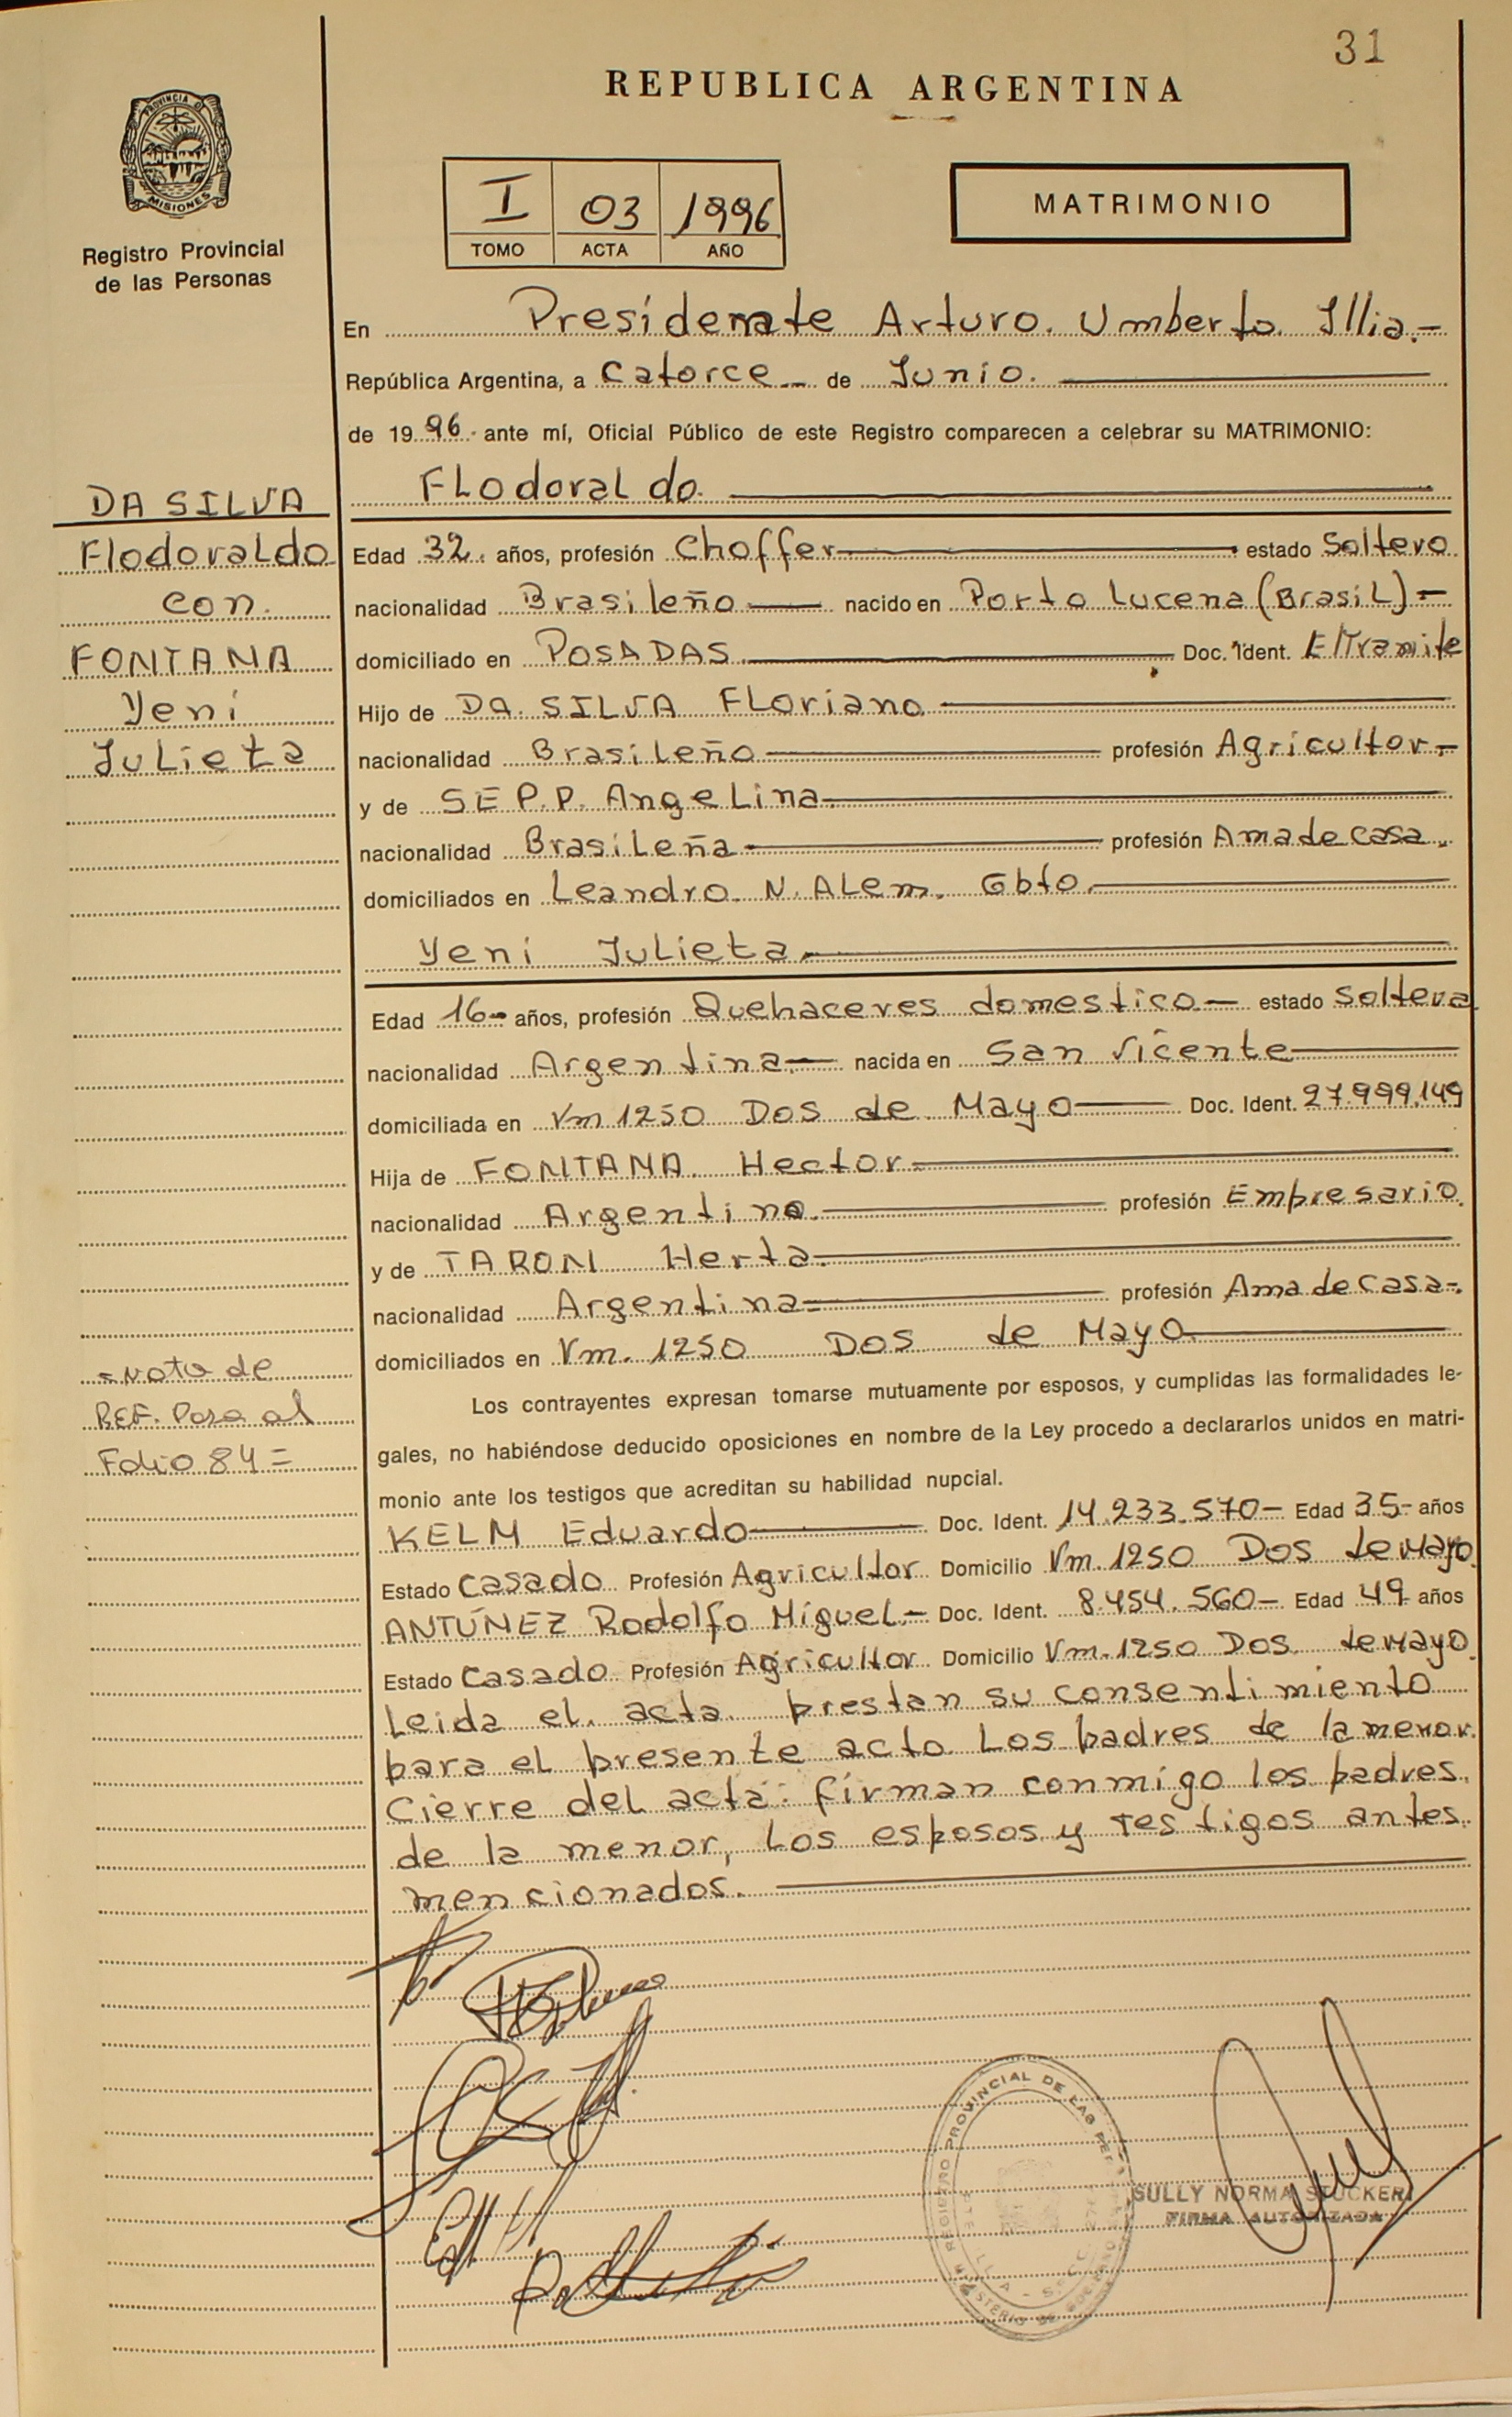 31
REPUBLICA ARGENTINA
PROVINCIA DE
MISIONES
Registro Provincial
de las Personas
I 03 1996
TOMO ACTA AÑO
MATRIMONIO
En Presidemte Arturo. Umberto. Illia.-
República Argentina, a Catorce de Junio.
de 1996. ante mí, Oficial Público de este Registro comparecen a celebrar su MATRIMONIO:
DA SILVA
Flodoraldo
con.
FONTANA
Yeni
Julieta
Flodoraldo.
Edad 32. años, profesión Choffer estado Soltero
nacionalidad Brasileño nacido en Porto Lucena (Brasil)-
domiciliado en POSADAS. Doc. Ident. E/Tramite
Hijo de DA. SILVA Floriano
nacionalidad Brasileño profesión Agricultor-
y de SEP.P. Angelina
nacionalidad Brasileña profesión Ama de casa.
domiciliados en Leandro. N. Alem. Gbto.
Yeni Julieta.
Edad 16- años, profesión Quehaceres domestico.- estado Soltera
nacionalidad Argentina.- nacida en San Vicente
domiciliada en Vm 1250 Dos de Mayo Doc. Ident. 27.999.149
Hija de FONTANA. Hector
nacionalidad Argentino. profesión Empresario.
y de TARON Herta.
nacionalidad Argentina profesión Ama de Casa-.
domiciliados en Vm. 1250 Dos de Mayo
=Nota de
REF. Pasa al
Folio 84=
Los contrayentes expresan tomarse mutuamente por esposos, y cumplidas las formalidades le-
gales, no habiéndose deducido oposiciones en nombre de la Ley procedo a declararlos unidos en matri-
monio ante los testigos que acreditan su habilidad nupcial.
KELM Eduardo Doc. Ident. 14.233.570- Edad 35- años
Estado Casado Profesión Agricultor Domicilio Vm. 1250 Dos de Mayo.
ANTÚNEZ Rodolfo Miguel.- Doc. Ident. 8.454.560- Edad 49 años
Estado Casado Profesión Agricultor Domicilio Vm. 1250 Dos de Mayo.
Leida el. acta. prestan su consentimiento
para el presente acto Los padres de la menor.
Cierre del acta: firman conmigo los padres.
de la menor, Los esposos y testigos antes.
mencionados.
REGISTRO PROVINCIAL DE LAS PER
MINISTERIO DE GOBIERNO
SULLY NORMA STUCKERT
FIRMA AUTORIZADA